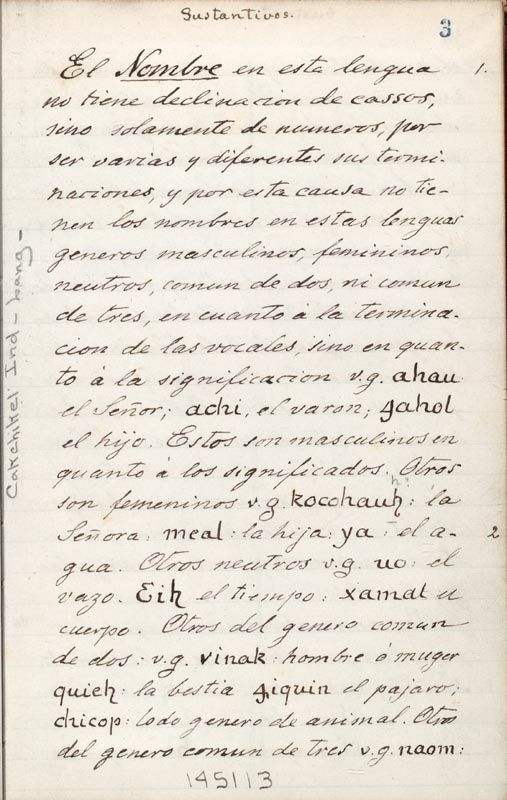 Sustantivos.
3
El Nombre en esta lengua 1.
no tiene declinacion de cassos,
sino solamente de numeros, por
ser varias y diferentes sus termi-
naciones, y por esta causa no tie-
nen los nombres en estas lenguas
generos masculinos, femininos,
neutros, comun de dos, ni comun
de tres, en cuanto á la termina-
cion de las vocales, sino en quan-
to á la significacion v.g. ahau
el Señor; achi, el varon; 4ahol
el hijo. Estos son masculinos en
quanto á los significados. Otros
son femeninos v.g. : la
Señora: meal: la hija: ya: el a- 2
gua. Otros neutros v.g. uo: el
vazo. el tiempo: xamal u
cuerpo. Otros del genero comun
de dos: v.g. vinak: hombre ó muger
quieh: la bestia 4iquin el pajaro;
chicop: todo genero de animal. Otros
del genero comun de tres v.g. naom:
145113
Cakchikel Ind-Lang-